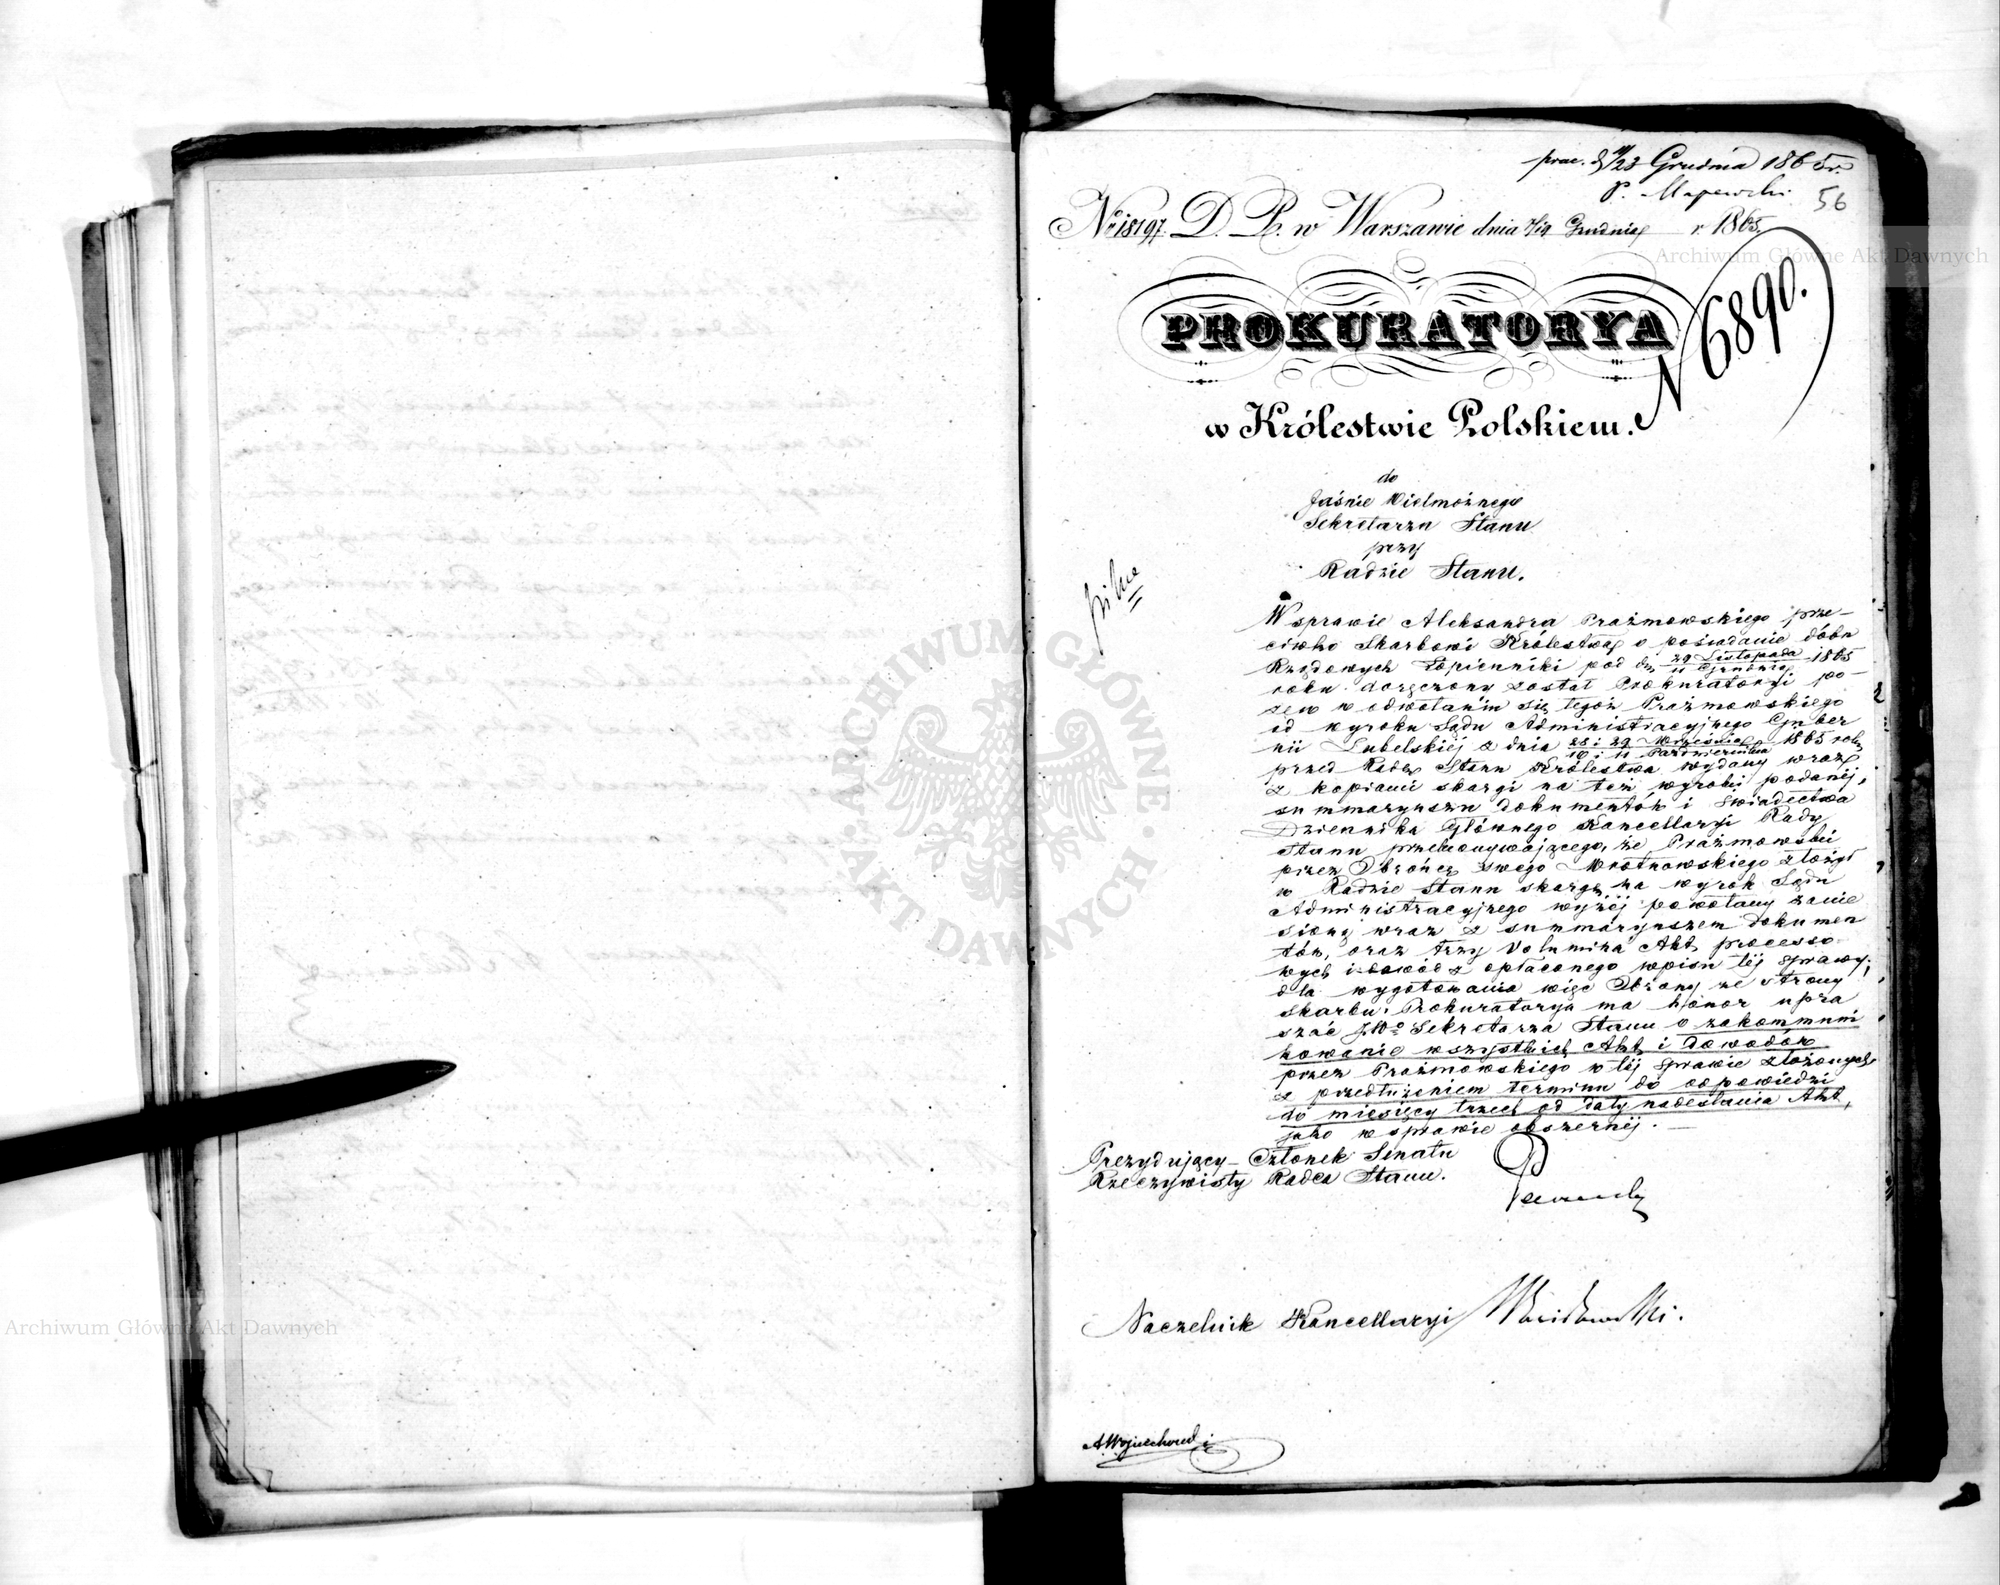 prae. d. 11/23 Grudnia 1865 r.
P. Majewski
56
No 18197. D. P. w Warszawie dnia 7/19 Grudnia r. 1865.
PROKURATORYA
N 6890.
w Królestwie Polskiem.
do
Jaśnie Wielmożnego
Sekretarza Stanu
przy
Radzie Stanu.
W sprawie Aleksandra Prażmowskiego prze-
ciwko Skarbowi Królestwa o posiadanie dóbr
Rządowych Łopienniki pod dn 29 Listopada / 11 Grudnia 1865
roku doręczony został Prokuratoryi po-
zew w odwołaniu się tegoż Prażmowskiego
od wyroku Sądu Administracyjnego Guber
nii Lubelskiéj z dnia 28 i 29 Września / 10 i 11 Października 1865 roku
przed Radę Stanu Królestwa wydany wraz
z kopiami skargi na ten wyrok podanéj,
summaryuszu dokumentów i Świadectwa
Dziennika Głównego Kancellaryi Rady
Stanu przekonywającego, że Prażmowski
przez Obrońcę swego Wrotnowskiego złożył
w Radzie Stanu skargę na wyrok Sądu
Administracyjnego wyżéj powołany zanie
sioną wraz z summaryuszem dokumen
tów, oraz trzy Volumina Akt processo-
wych i dowód z opłaconego wpisu téj sprawy;
dla wygotowania więc Obrony ze strony
Skarbu Prokuratorya ma honor upra
szać JWo Sekretarza Stanu o zakommuni
kowanie wszystkich Akt i dowodów
przez Prażmowskiego w téj sprawie złożonych
z przedłużeniem terminu do odpowiedzi
do miesięcy trzech od daty nadesłania Akt,
jako w sprawie obszernéj.
Prezydujący Członek Senatu
Rzeczywisty Radca Stanu.
Naczelnik Kancellaryi
A Wojciechowski
ARCHIWUM GŁÓWNE
AKT DAWNYCH
Archiwum Główne Akt Dawnych
Archiwum Główne Akt Dawnych